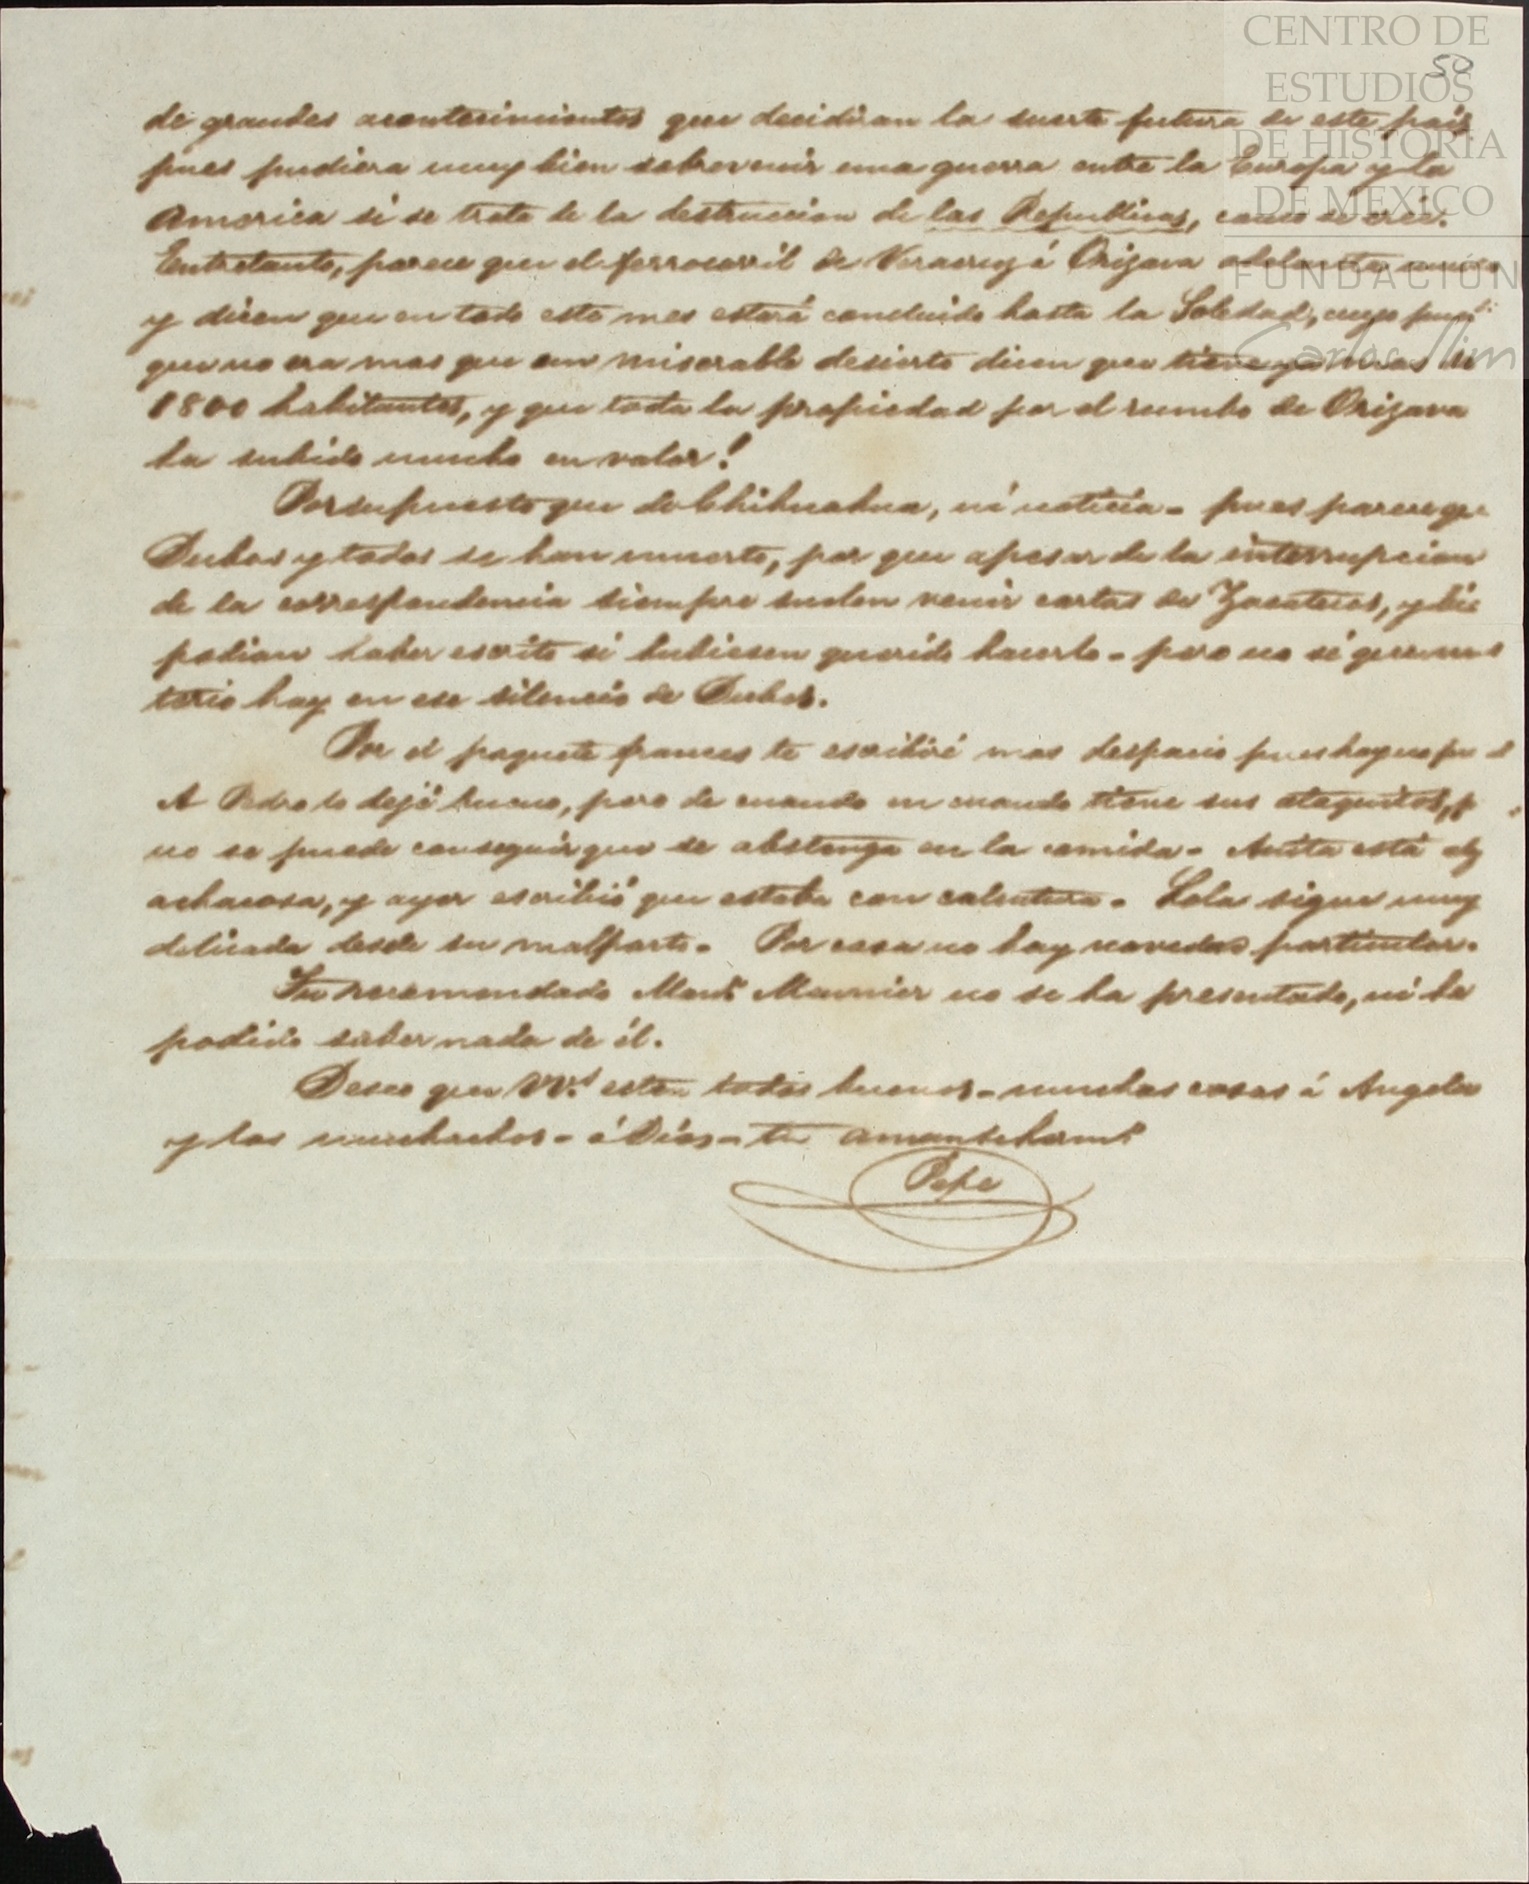 CENTRO DE
ESTUDIOS
DE HISTORIA
DE MEXICO
FUNDACIÓN
Carlos Slim
50
de grandes acontecimientos que decidiran la suerte futura de este pais
pues pudiera muy bien sobrevenir una guerra entre la Europa y la
America si se trata de la destruccion de las Republicas, como se cree.
Entretanto, parece que el ferrocarril de Veracruz á Orizava adelanta mucho
y dicen que en todo este mes estará concluido hasta la Soledad, cuyo
que no era mas que un miserable desierto dicen que tiene ya mas de
1800 habitantes, y que toda la propiedad por el rumbo de Orizava
ha subido mucho en valor!
Por supuesto que de Chihuahua, ni noticia - pues parece que
Dubos y todos se han muerto, por que apesar de la interrupcion
de la correspondencia siempre suelen venir cartas de Zacatecas, y
podian haber escrito si hubiesen querido hacerlo - pero no sé que mis
terio hay en ese silencio de Dubos.
Por el paquete frances te escribiré mas despacio pues hay
A Pedro lo dejé bueno, pero de cuando en cuando tiene sus ataquitos,
no se puede conseguir que se abstenga en la comida - Anita está
achacosa, y ayer escribió que estaba con calentura. Lola sigue muy
delicada desde su malparto. Por casa no hay novedad particular.
Tu recomendado Monsr Meunier no se ha presentado, ni he
podido saber nada de él.
Deseo que VV.s esten todos buenos - muchas cosas á Angela
y los muchachos - á Dios - tu amante herm.o
Pepe